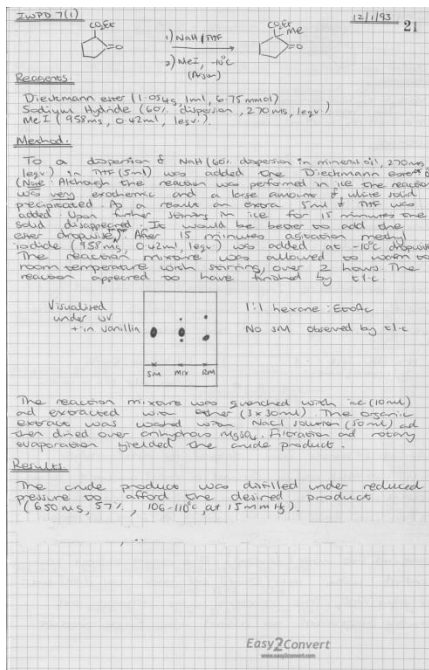 IWPD 7(1)
12/1/93 21
CO₂Et
CO₂Et
Me
1) NaH/THF
2) MeI, -10°C
(Argon)
O
O
Reagents:
Dieckmann ester (1.054g, 1ml, 6.75mmol)
Sodium Hydride (60% dispersion, 270mg, 1eqv)
MeI (958mg, 0.42ml, 1eqv)
Method.
To a dispersion of NaH (60% dispersion in mineral oil, 270mg,
1eqv) in THF (5ml) was added the Dieckmann ester
(Note: Although the reaction was performed in ice the reaction
was very exothermic and a large amount of white solid
precipitated. As a result an extra 5ml of THF was
added. Upon further stirring in ice for 15 minutes the
solid disappeared. It would be better to add the
ester dropwise). After 15 minutes agitation methyl
iodide (958mg, 0.42ml, 1eqv) was added at -10°C dropwise
The reaction mixture was allowed to warm to
room temperature with stirring, over 2 hours. The
reaction appeared to have finished by tlc
Visualised
under UV
+ in vanillin
1:1 hexane : EtOAc
No SM observed by tlc
SM MIX RM
The reaction mixture was quenched with ice (10ml)
and extracted with ether (3x30ml). The organic
extract was washed with NaCl solution (50ml) and
then dried over anhydrous MgSO₄. Filtration and rotary
evaporation yielded the crude product.
Results.
The crude product was distilled under reduced
pressure to afford the desired product
(650mg, 57%, 106-110°C, at 15mmHg).
Easy2Convert
www.easy2convert.com